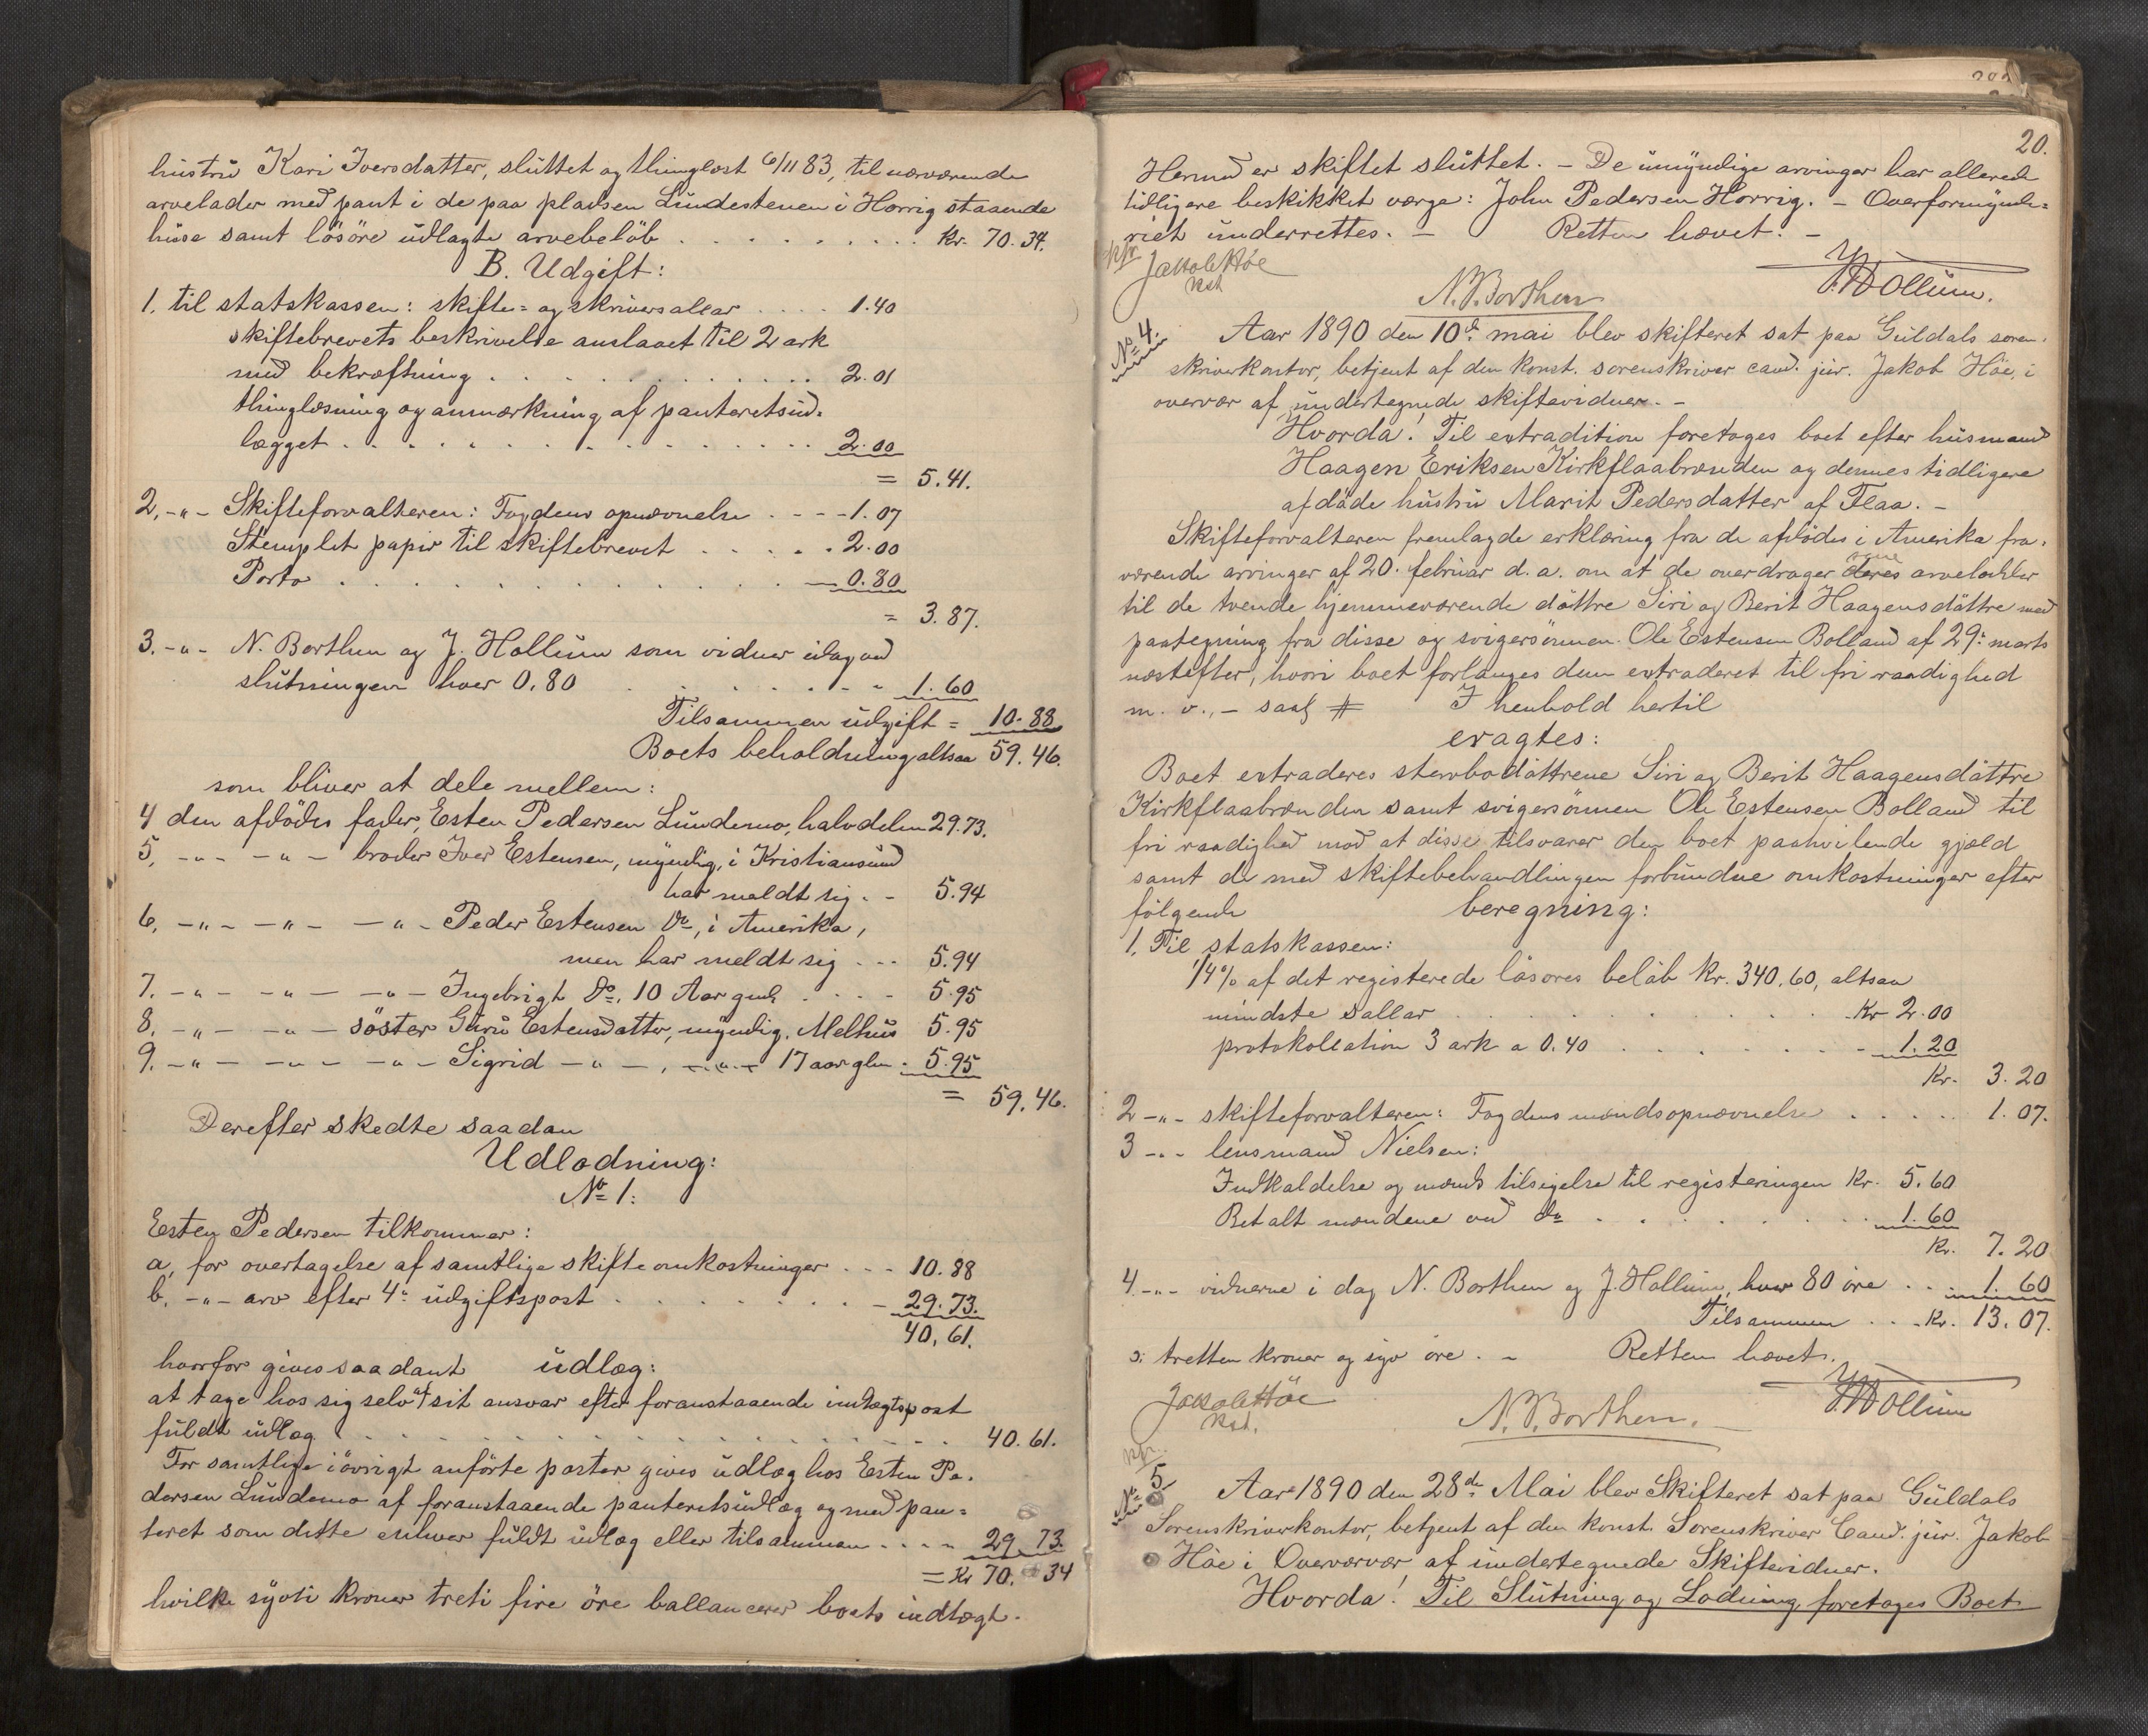 hustru Kari Iversdatter, sluttet og thinglæst 6/11 83, til nærværende
arvelader med pant i de paa pladsen Lundestenen i Horrig staaende
huse samt lösöre udlagte arvebelöb . . . . . . . . . . Kr. 70.34.
B. Udgift:
1. til statskassen: skifte= og skriversallar . . . . 1.40
skiftebrevets beskrivelse anslaaet til 2 ark
med bekræftning . . . . . . . . . . . . 2.01
thinglæsning og anmærkning af panteretsud=
lægget . . . . . . . . . . . . . . . 2.00
= 5.41.
2. -"- Skifteforvalteren: Fogdens opnævnelse . - - - 1.07
Stemplet papir til skiftebrevet . . . . . 2.00
Porto . . . . . . . . . . . . . . 0.80
= 3.87.
3. -"- N. Borthen og J. Hollum som vidner idag ved
slutningen hver 0.80 . . . . . . . 1.60
Tilsammen udgift = 10.88
Boets beholdning altsaa 59.46.
som bliver at dele mellem:
4 den afdödes fader, Esten Pedersen Lundemo, halvdelen 29.73.
5. -"- -"- broder Iver Estensen, myndig, i Kristiansund
har meldt sig. - 5.94
6. -"- -"- -"- Peder Estensen do, i Amerika,
men har meldt sig . . . 5.94
7. -"- -"- -"- Ingebrigt do. 10 Aar gml . . . . 5.95
8. -"- -"- söster Guru Estensdatter, myndig, Melhus 5.95
9. -"- -"- -"- Sigrid -"-, -"- 17 aar glm . 5.95
= 59.46.
Derefter skedte saadan
Udlodning:
No 1:
Esten Pedersen tilkommer:
a, for overtagelse af samtlige skifteomkostninger . . . 10.88
b. -"- arv efter 4de udgiftspost . . . . . . . 29.73.
40.61.
hvorfor gives saadant udlæg:
at tage hos sig selv af sit ansvar efter foranstaaende indtægtspost
fuldt udlæg . . . . . . . . . . . . . . . . . . 40.61.
For samtlige iövrigt anförte poster gives udlæg hos Esten Pe=
dersen Lundemo af foranstaaende panteretsudlæg og med pan=
teret som dette enhver fuldt udlæg eller tilsammen . . . . 29.73.
= Kr 70.34
hvilke sytti kroner treti fire öre ballancerer boets indtægt.
20.
Hermed er skiftet sluttet. - De umyndige arvinger har allerede
tidligere beskikket værge: John Pedersen Horrig. - Overformynde=
riet underrettes. - Retten hævet. -
Jakob Höe
kst
N. P. Borthen
J. Hollum.
No 4.
Aar 1890 den 10de mai blev skifteret sat paa Guldals soren=
skriverkontor, betjent af den konst. sorenskriver cand. jur. Jakob Höe, i
overvær af undertegnede skiftevidner. -
Hvorda! Til extradition foretoges boet efter husmand
Haagen Eriksen Kirkflaabrænden og dennes tidligere
afdöde hustru Marit Pedersdatter af Flaa. -
Skifteforvalteren fremlagde erklæring fra de afdödes i Amerika fra=
værende arvinger af 20. februar d. a. om at de overdrager deres arvelodder
til de tvende hjemmeværende döttre Siri og Berit Haagensdöttre med
paategning fra disse og svigersönnen Ole Estensen Bolland af 29de marts
næstefter, hvori boet forlanges dem extraderet til fri raadighed
m. v., - saal # I henhold hertil
eragtes:
Boet extraderes stervbodöttrene Siri og Berit Haagensdöttre
Kirkflaabrænden samt svigersönnen Ole Estensen Bolland til
fri raadighed mod at disse tilsvarer den boet paahvilende gjæld
samt de med skiftebehandlingen forbundne omkostninger efter
fölgende beregning:
1. Til statskassen:
1/4% af det registerede lösöres belöb Kr. 340.60, altsaa
mindste sallar . . . . . . . . . . Kr 2.00
protokollation 3 ark a 0.40 . . . . . . . . 1.20
Kr. 3.20
2 -"- skifteforvalteren: Fogdens mændsopnævnelse . . . . . 1.07.
3 -"- lensmand Nielsen:
Indkaldelse og mænds tilsigelse til registeringen Kr. 5.60
Betalt mændene ved do . . . . . . . . 1.60
Kr. 7.20
4. -"- vidnerne i dag N. Borthen og J. Hollum, hver 80 öre . . . 1.60
Tilsammen . . . Kr. 13.07.
ɔ: tretten kroner og syv öre. - Retten hævet.
Jakob Höe
kst.
N. P. Borthen.
J. Hollum
No 5
Aar 1890 den 28de Mai blev Skifteret sat paa Guldals
Sorenskriverkontor, betjent af den konst. Sorenskriver Cand. jur. Jakob
Höe i Overværvær af undertegnede Skiftevidner.
Hvorda! Til Slutning og Lodning foretoges Boet